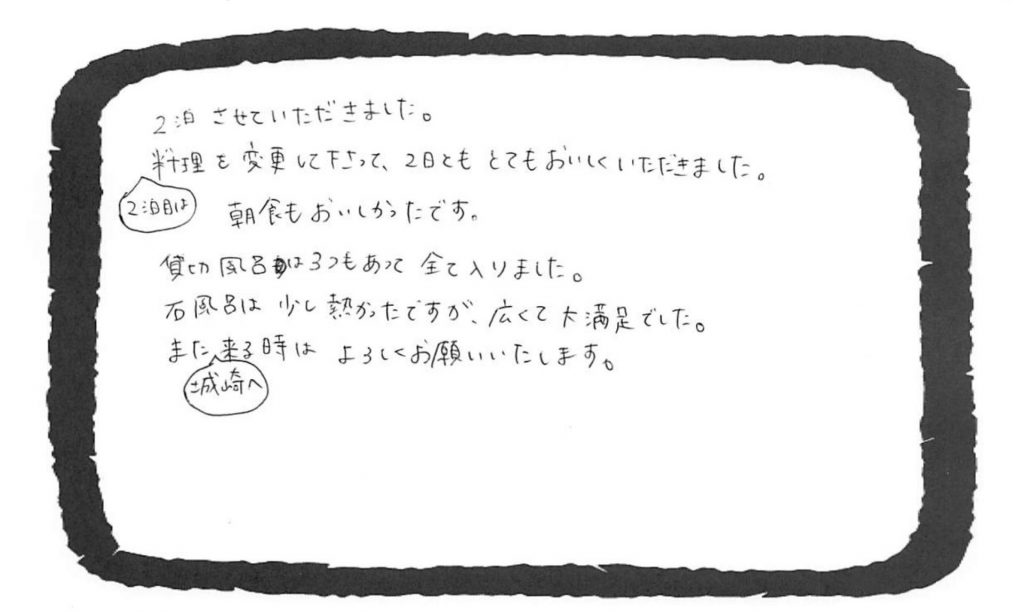 2泊させていただきました。
料理を変更して下さって、2日ともとてもおいしくいただきました。
2泊目は
朝食もおいしかったです。
貸切風呂は3つもあって全て入りました。
石風呂は少し熱かったですが、広くて大満足でした。
また来る時はよろしくお願いいたします。
城崎へ